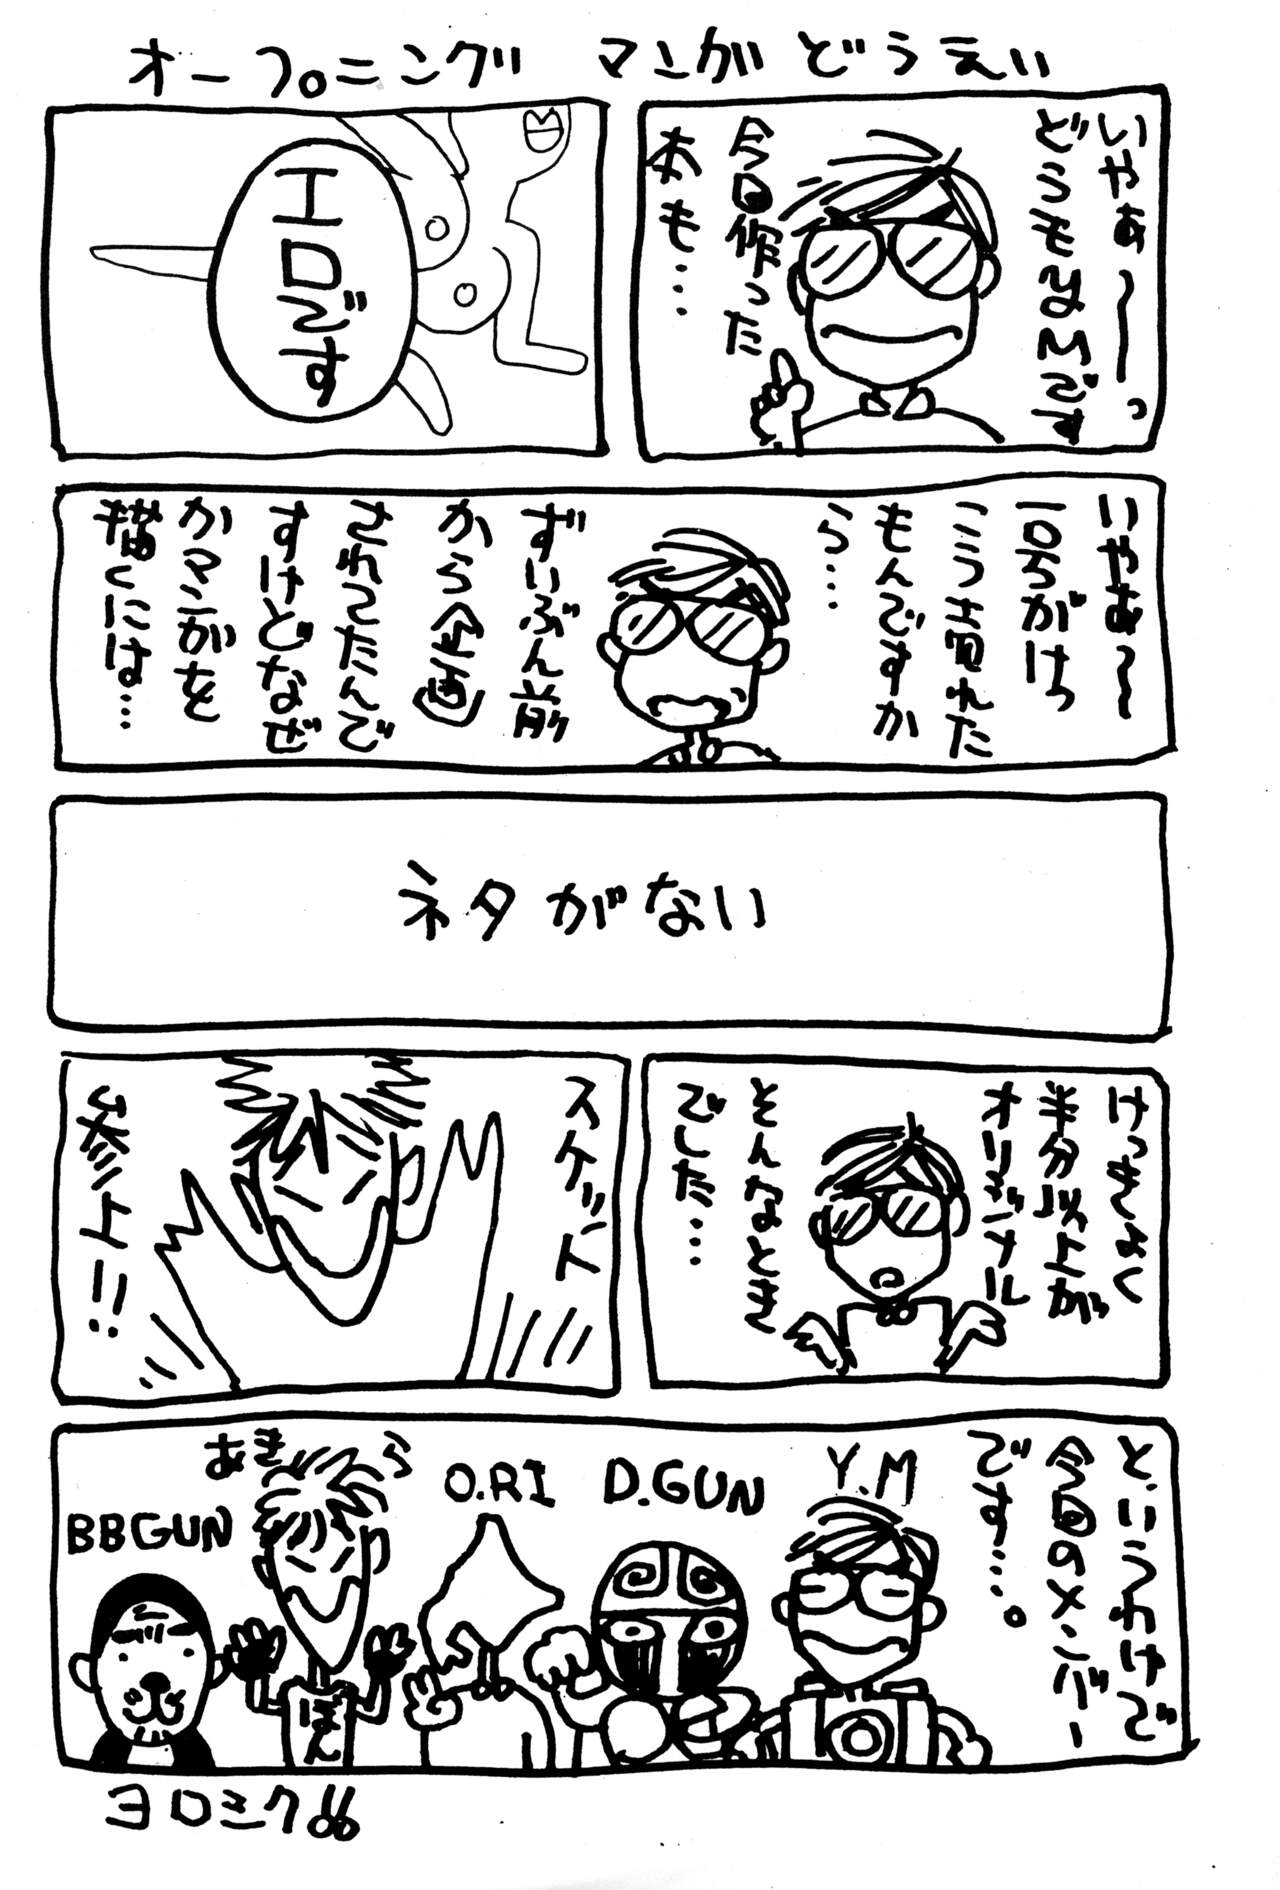 オープニング マンガ どうえい
いやぁ～～っ
どうもY.Mです
今回作った
本も…
エロです
いやぁ～～
一ロちがけっ
こう売れた
もんですか
ら…
ずいぶん前
から企画
されてたんで
すけどなぜ
かマンガを
描くには…
ネタがない
けっきょく
半分以上が
オリジナル
そんなとき
でした…
スケット
参上!!
というわけで
今回のメンバー
です…。
Y.M
D.GUN
O.RI
あきら
BBGUN
ぽん
ヨロシク!!